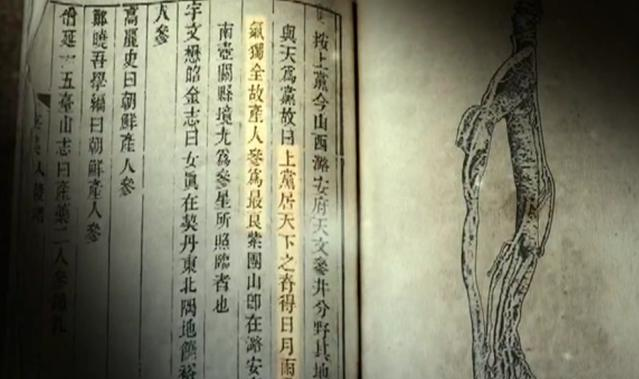 按上黨今山西潞安府天文參井分野其地
與天爲黨故曰上黨居天下之脊得日月雨
氣獨全故產人參爲最良紫團山卽在潞安
南壺關縣境尤爲參星所照臨者也
宇文懋昭金志曰女眞在契丹東北隅地饒裕
人參
高麗史曰朝鮮產人參
鄭曉吾學編曰朝鮮產人參
五臺山志曰產藥二人參